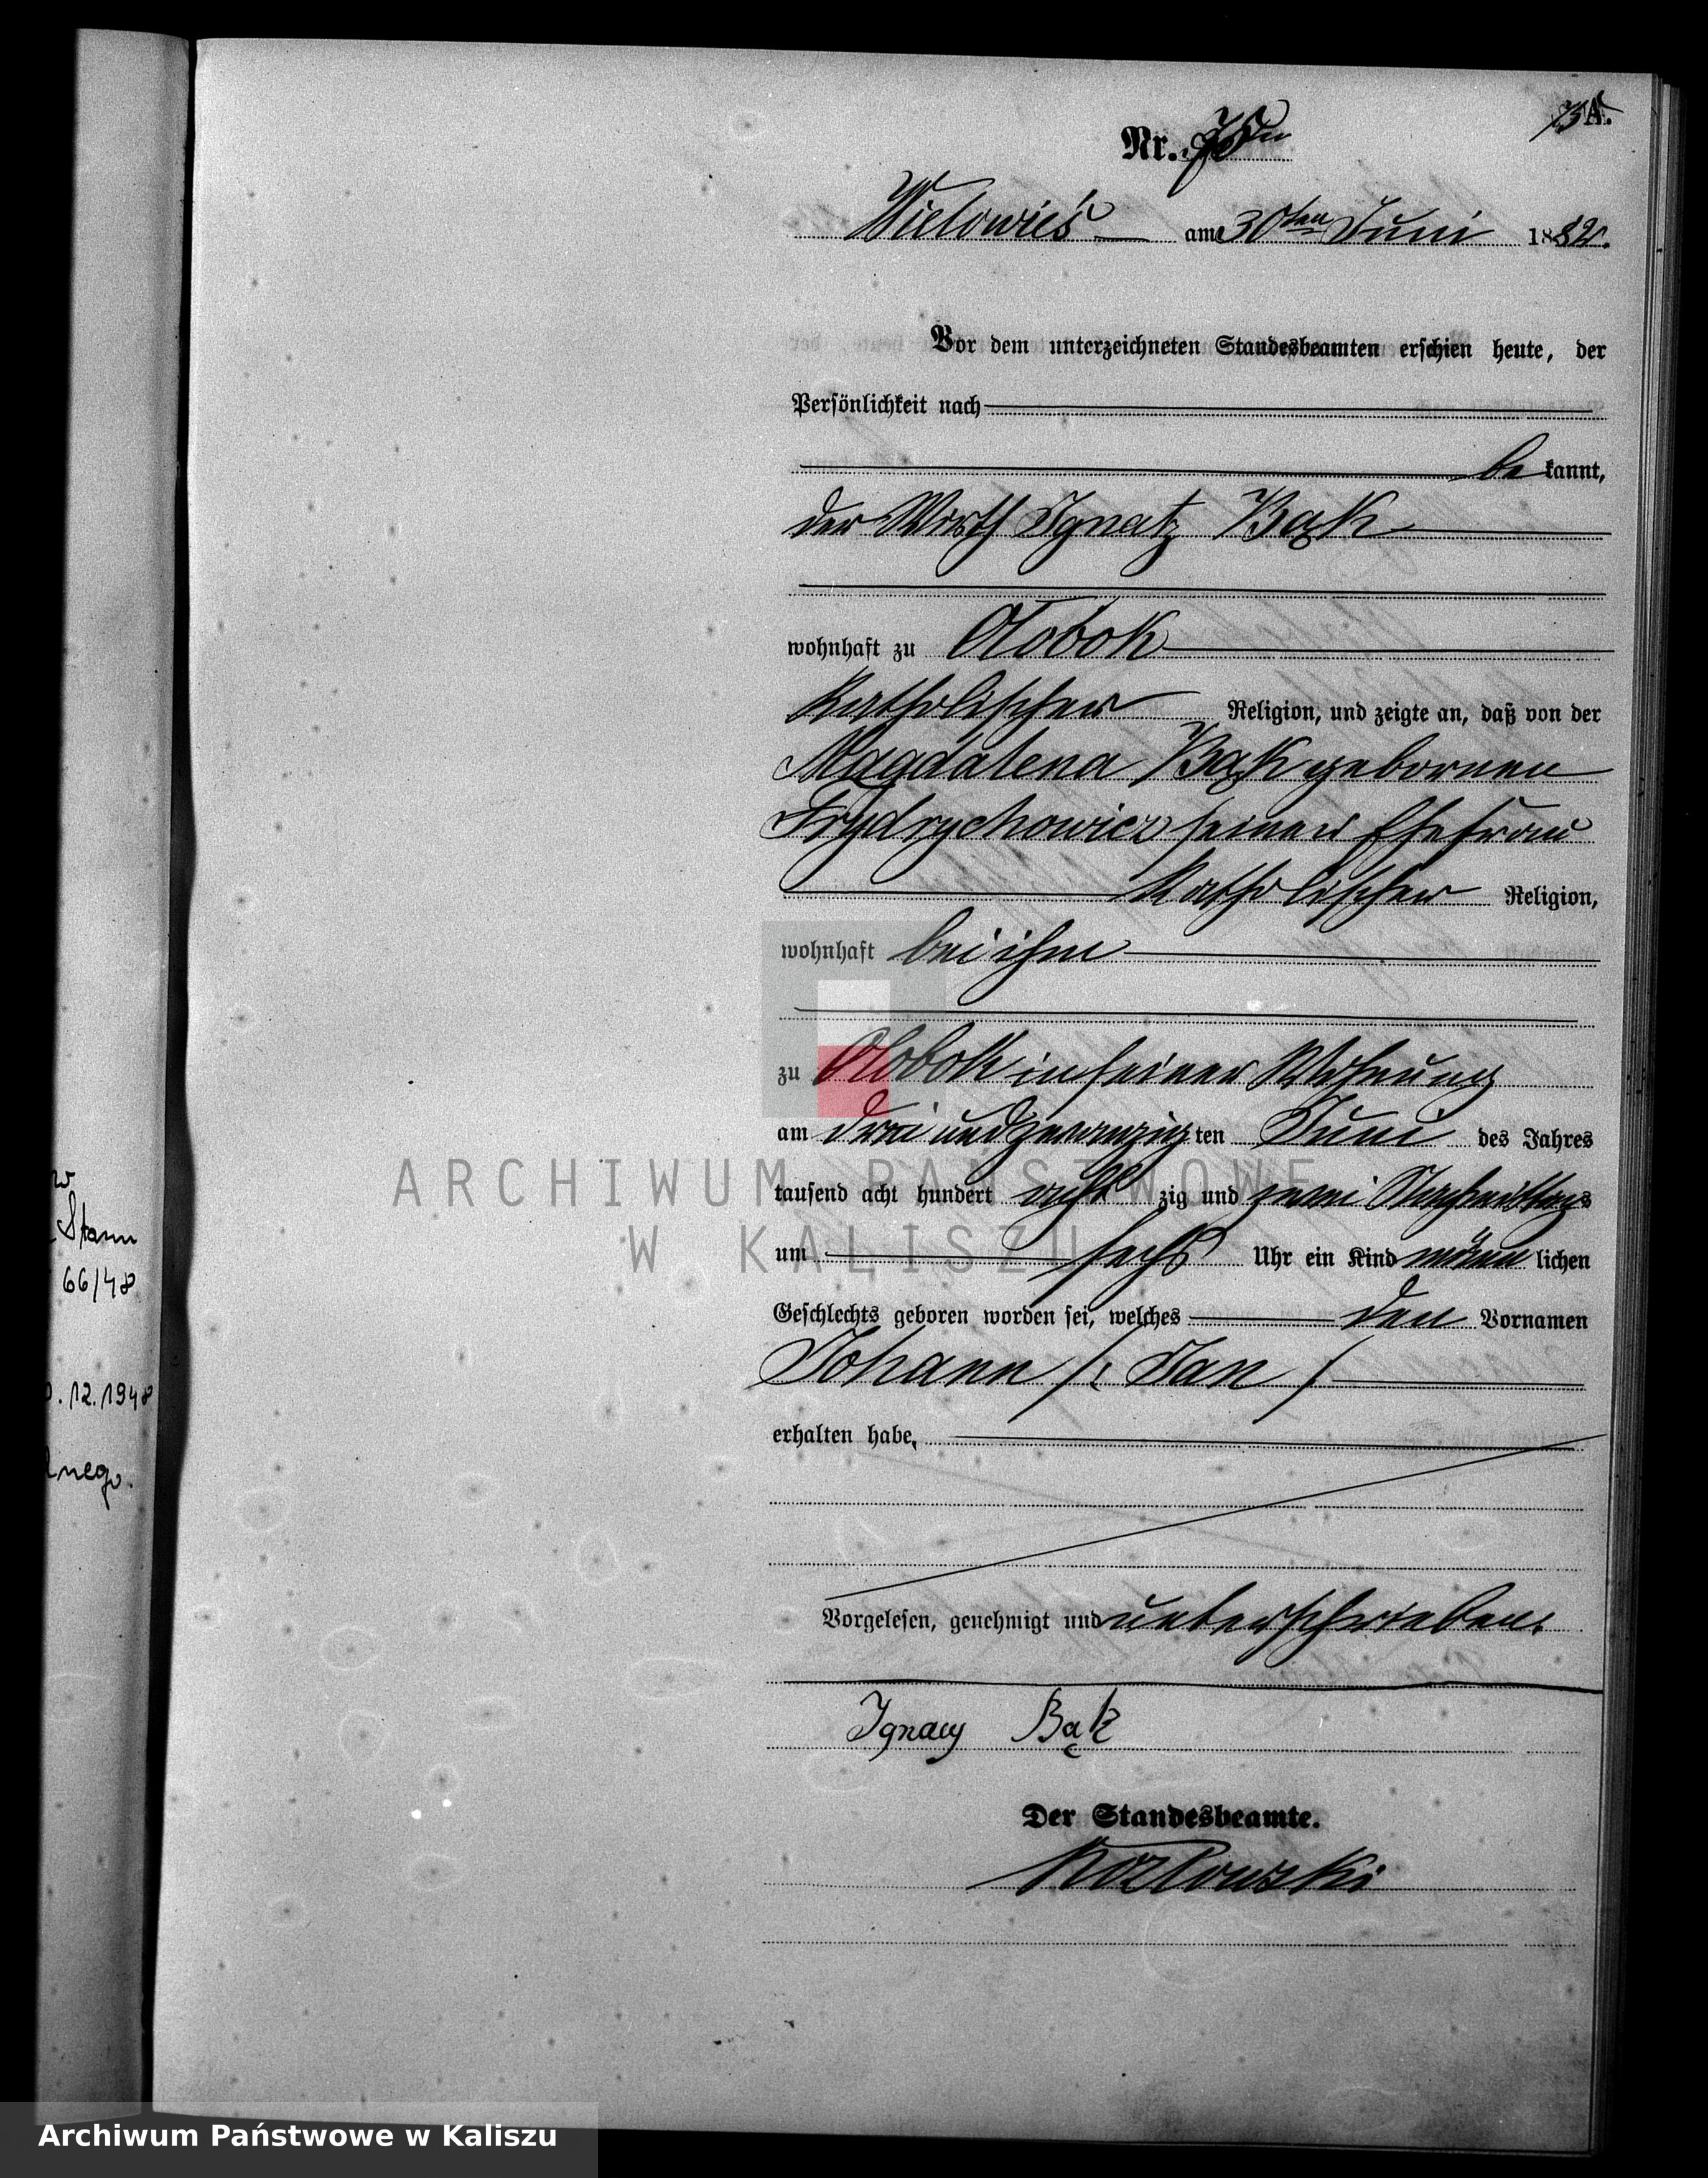 A.
73
Nr. 75
Wielowieś am 30ten Juni 1882.
Vor dem unterzeichneten Standesbeamten erschien heute, der
Persönlichkeit nach
be kannt,
der Wirth Ignatz Bąk
wohnhaft zu Ołobok
katholischer Religion, und zeigte an, daß von der
Magdalena Bąk gebornen
Frydrychowicz seiner Ehefrau
katholischer Religion,
wohnhaft bei ihm
zu Ołobok in seiner Wohnung
am drei und zwanzig ten Juni des Jahres
tausend acht hundert acht zig und zwei Nachmittags
um sechs Uhr ein Kind männ lichen
Geschlechts geboren worden sei, welches den Vornamen
Johann /: Jan /
erhalten habe,
Vorgelesen, genehmigt und unterschrieben.
Ignacy Bąk
Der Standesbeamte.
Kozłowski
Stann
66/48
.12.1948
nego.
ARCHIWUM PAŃSTWOWE
W KALISZU
Archiwum Państwowe w Kaliszu